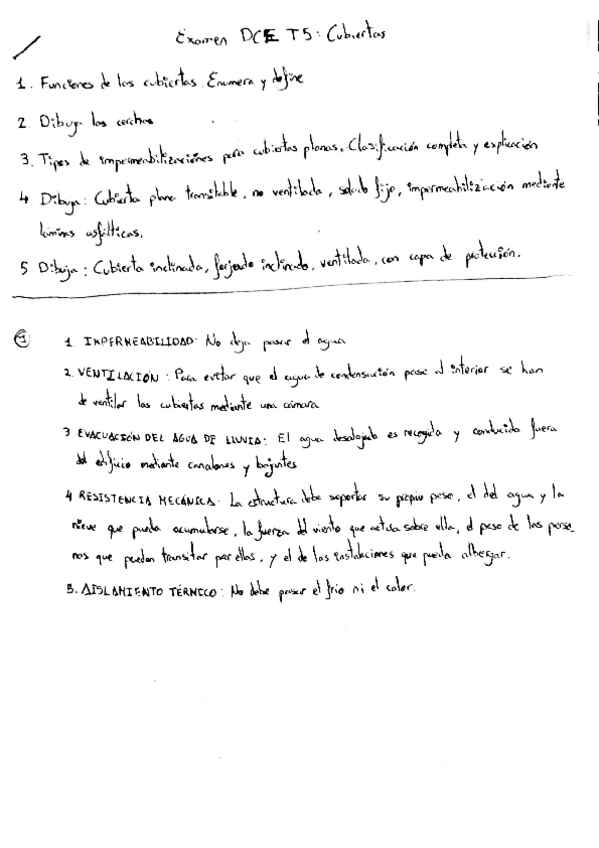 Examen DCE T5: Cubiertas
1. Funciones de las cubiertas. Enumera y define
2. Dibuja las cerchas
3. Tipos de impermeabilizaciones para cubiertas planas. Clasificación completa y explicación
4. Dibuja: Cubierta plana transitable, no ventilada, solado fijo, impermeabilización mediante
láminas asfálticas.
5 Dibuja: Cubierta inclinada, forjado inclinado, ventilada, con capa de protección.
1 1. IMPERMEABILIDAD: No deja pasar el agua
2. VENTILACIÓN: Para evitar que el agua de condensación pase al interior se han
de ventilar las cubiertas mediante una cámara
3 EVACUACIÓN DEL AGUA DE LLUVIA: El agua desalojada es recogida y conducida fuera
del edificio mediante canalones y bajantes
4 RESISTENCIA MECÁNICA. La estructura debe soportar su propio peso, el del agua y la
nieve que pueda acumularse, la fuerza del viento que actúa sobre ella, el peso de las perso_
nas que puedan transitar por ellas, y el de las instalaciones que pueda albergar.
5. AISLAMIENTO TÉRMICO: No debe pasar el frio ni el calor.